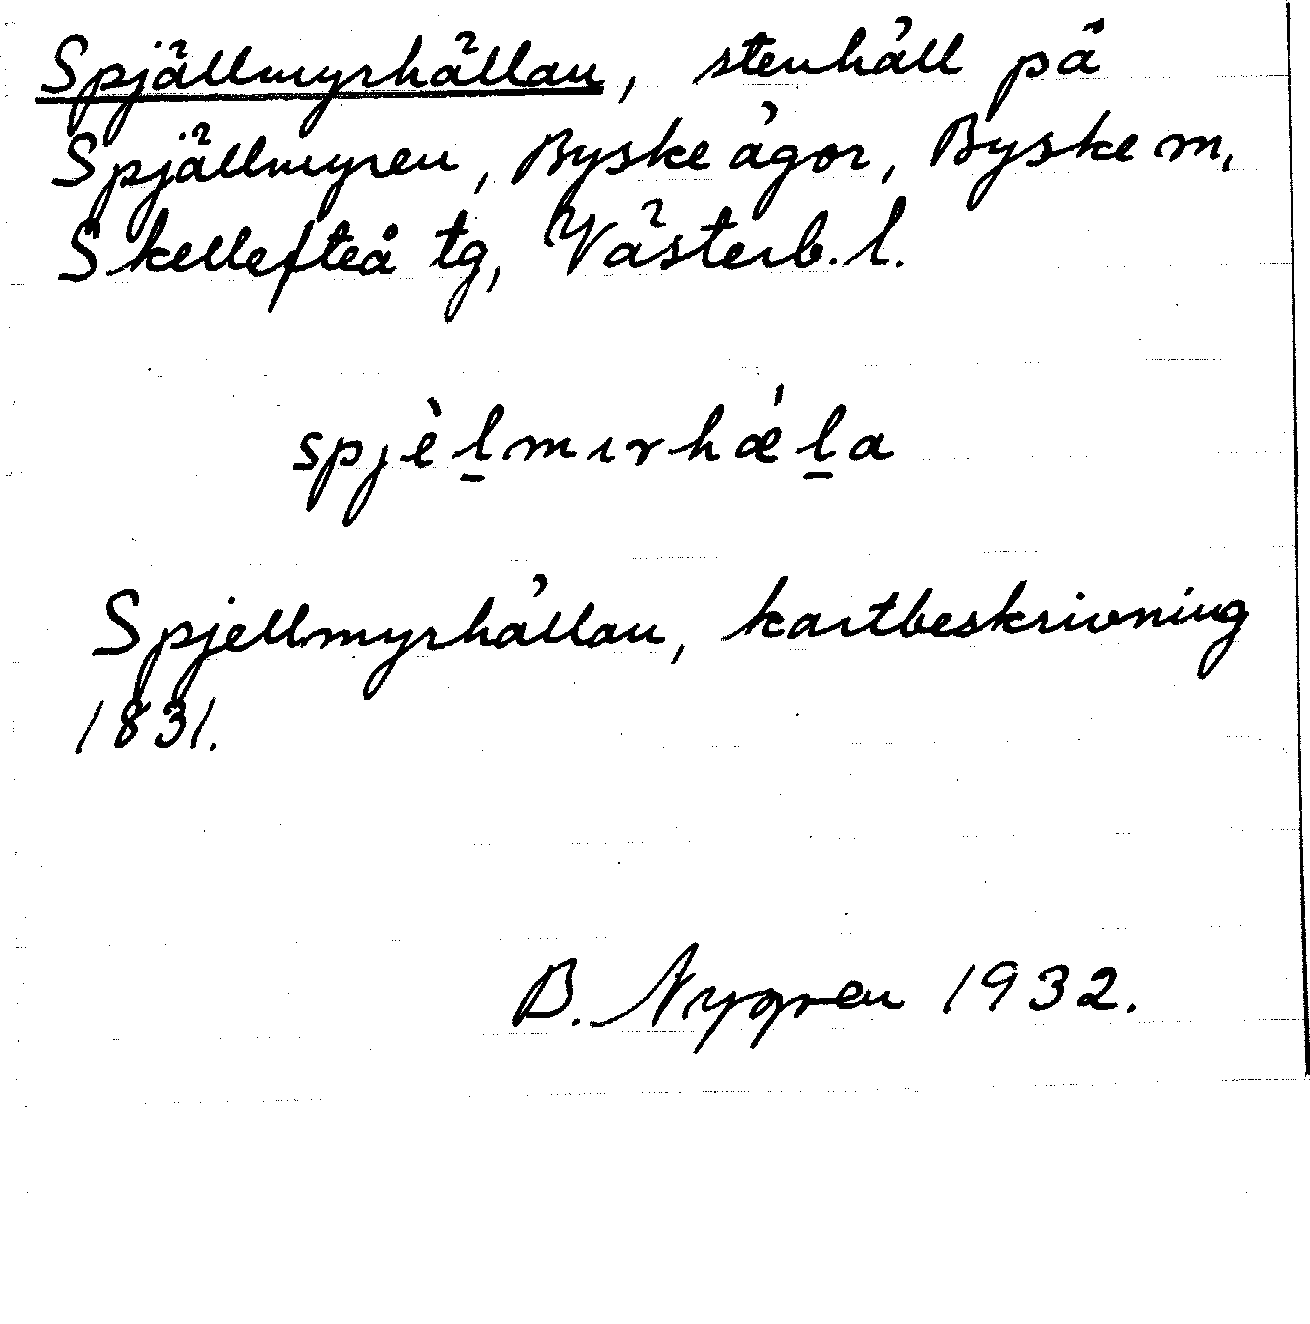 Spjällmyrhällan, stenhäll på
Spjällmyren, Byske ägor, Byske sn,
Skellefteå tg, Västerb. l.
spjὲl̠mırhǽl̠a
Spjellmyrhällan, kartbeskrivning
1831.
B. Nygren 1932.